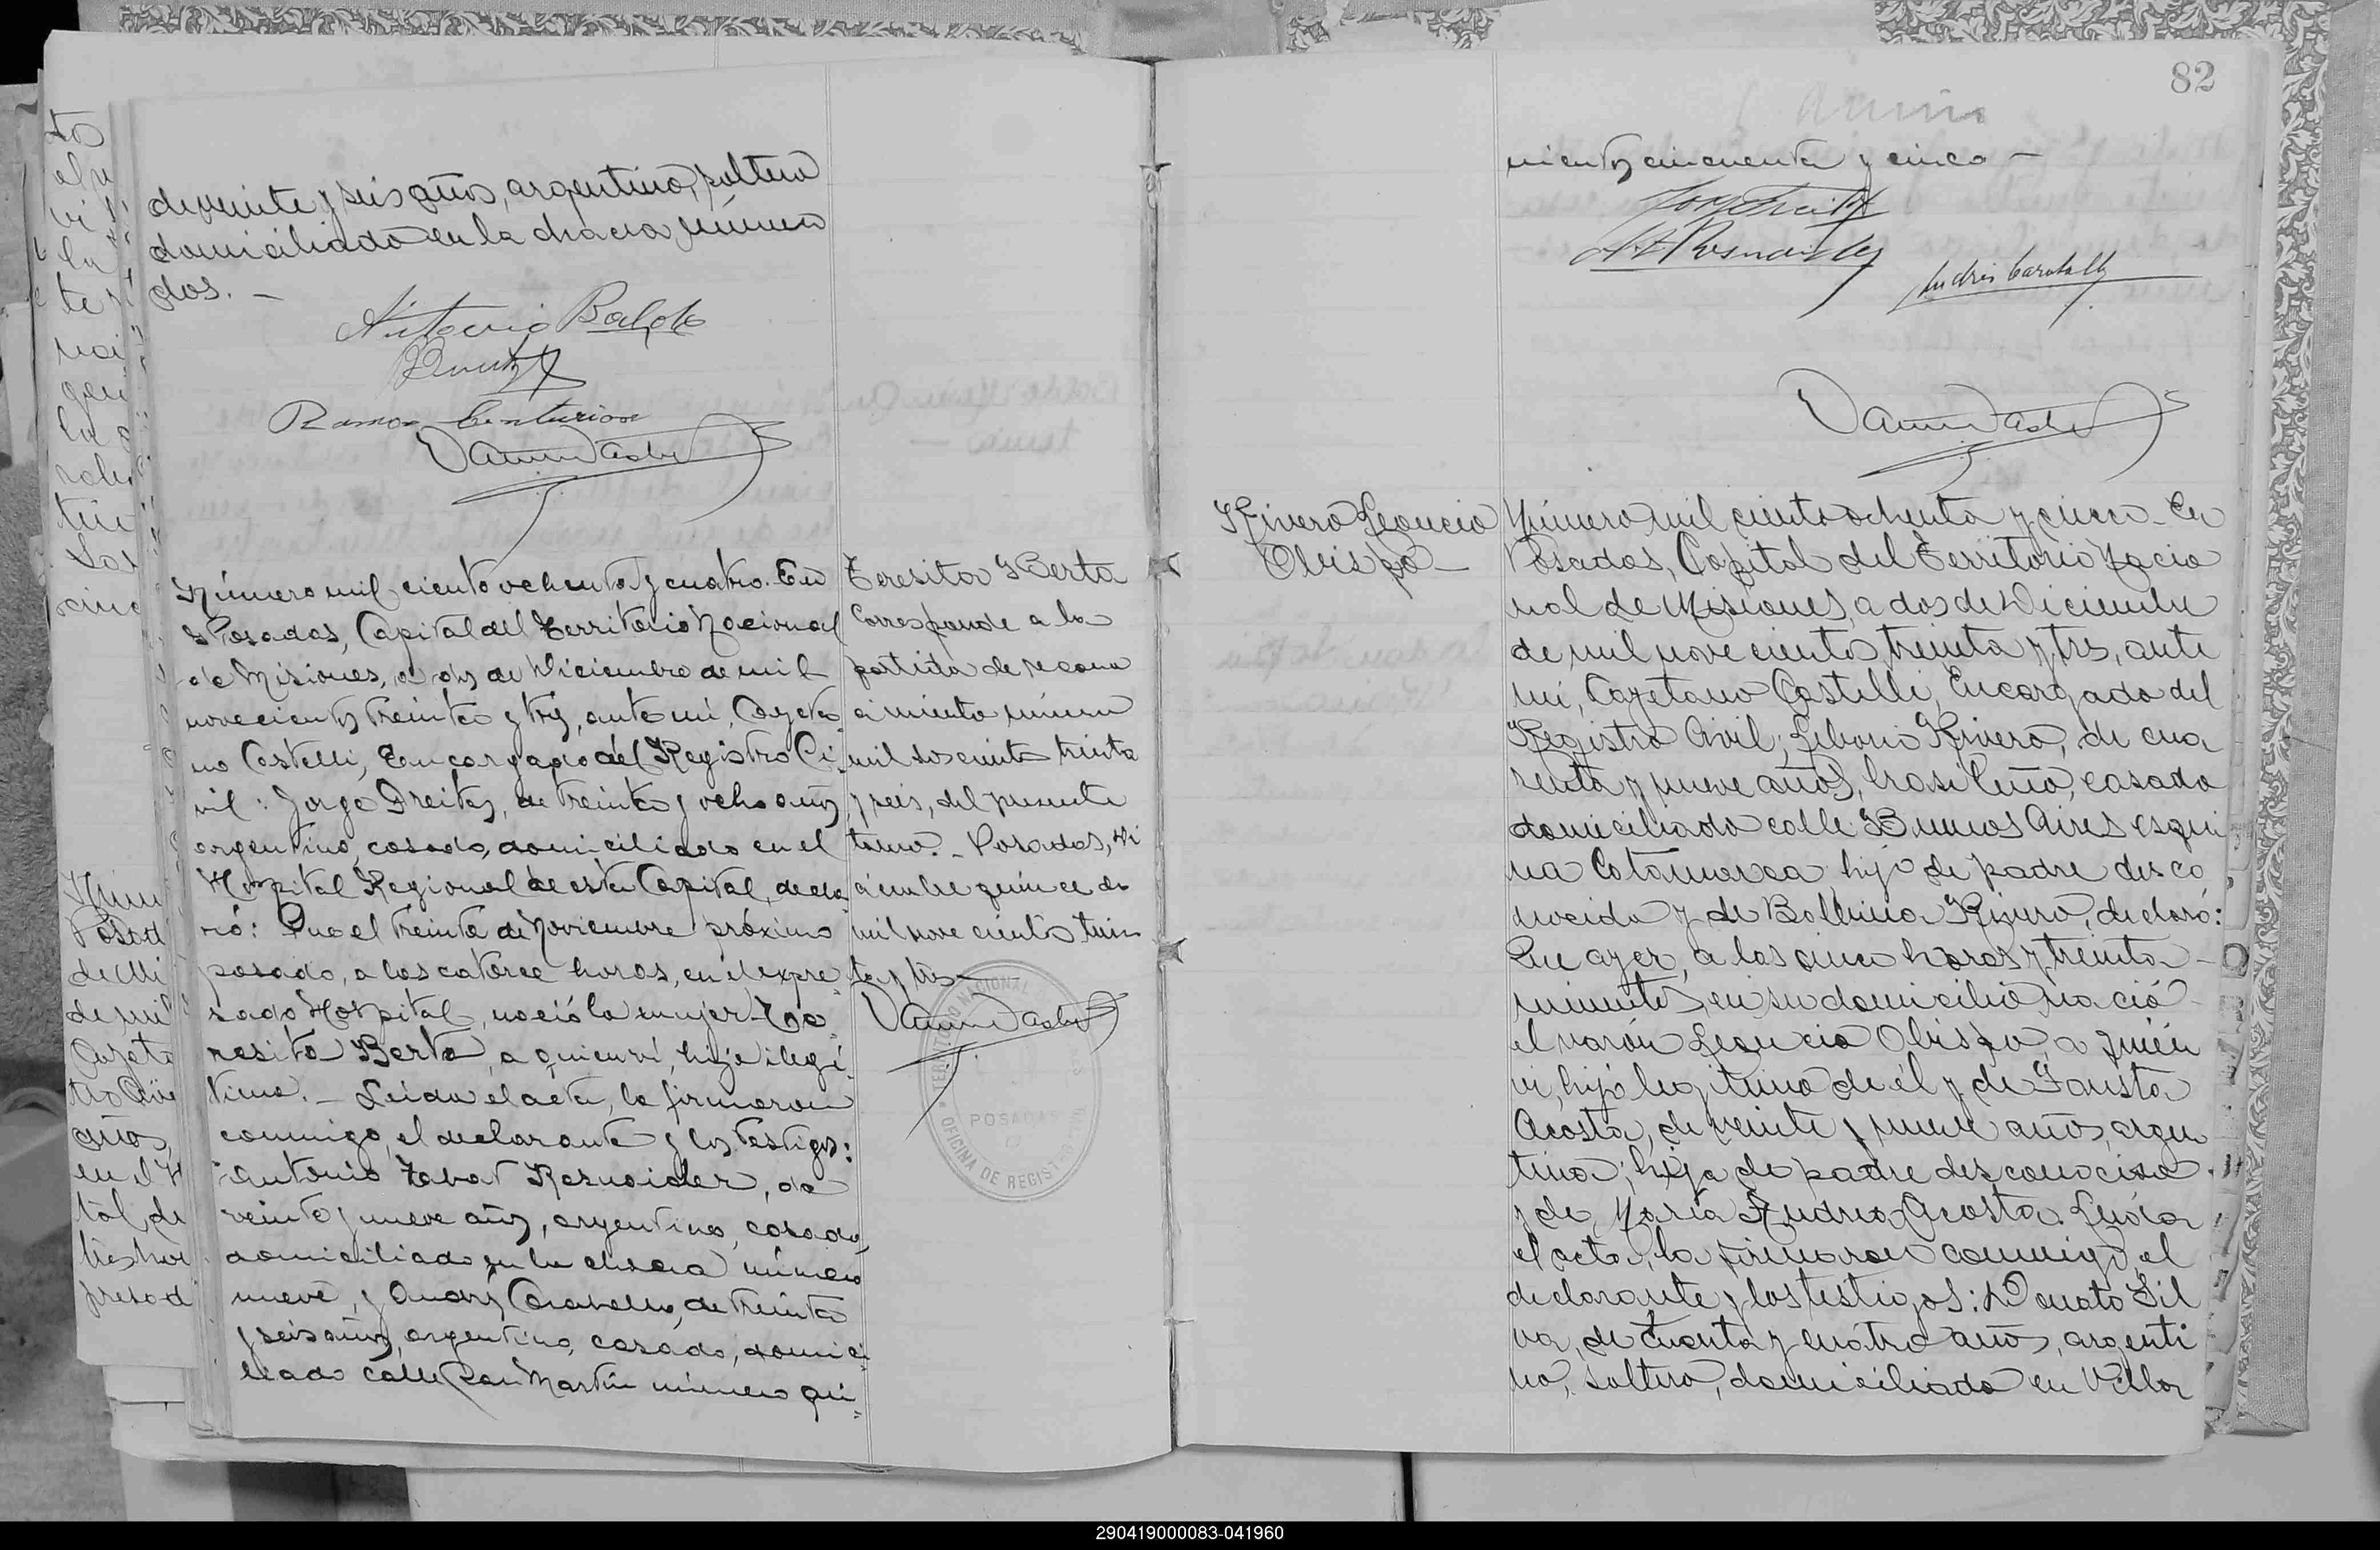 de veinte y seis años, argentino, soltero
domiciliado en la chacra número
dos. —
Antonio Baldo
Ramon Centurion
Número mil ciento ochenta y cuatro. En
Posadas, Capital del Territorio Nacional
de Misiones, a dos de Diciembre de mil
novecientos treinta y tres, ante mí, Cayeta
no Castelli, Encargado del Registro Ci-
vil: Jorge Dreites, de treinta y ocho años
argentino, casado, domiciliado en el
Hospital Regional de esta Capital, decla-
ró: Que el treinta de Noviembre próximo
pasado, a las catorce horas, en el expre-
sado Hospital, nació la mujer Te-
resita Berta, a quien ví, hija ilegí-
tima. — Leída el acta, la firmaron
conmigo, el declarante y los testigos:
Antonio Rosnaider, de
veinte y nueve años, argentino, casado,
domiciliado en la chacra número
nueve, y Andrés Caraballo, de treinta
y seis años, argentino, casado, domici-
liado calle San Martín número qui-
Teresita Berta
Corresponde a la
partida de recono
cimiento número
mil doscientos treinta
y seis, del presente
tomo. — Posadas, Di
ciembre quince de
mil novecientos trein
ta y tres —
TERRITORIO NACIONAL
POSADAS
OFICINA DE REGISTRO CIVIL
82
nientos cincuenta y cinco —
Andrés Caraballo
Rivero Leoncio
Obispo —
Número mil ciento ochenta y cinco — En
Posadas, Capital del Territorio Nacio
nal de Misiones, a dos de Diciembre
de mil novecientos treinta y tres, ante
mí, Cayetano Castelli, Encargado del
Registro Civil; Liborio Rivero, de cua
renta y nueve años, brasileño, casado
domiciliado calle Buenos Aires esqui
na Catamarca hijo de padre desco
nocido y de Balbina Rivero, declaró:
Que ayer, a las cinco horas y treinta —
minutos, en su domicilio nació
el varón Leoncio Obispo, a quién
ví, hijo legítimo de él y de Fausta
Acosta, de veinte y nueve años, argen
tina; hija de padre desconocido
y de María Andrea Acosta. Leída
el acta, la firmaron conmigo, el
declarante y los testigos: Donato Sil
va, de treinta y cuatro años, argenti
no, soltero, domiciliado en Villa
290419000083-041960